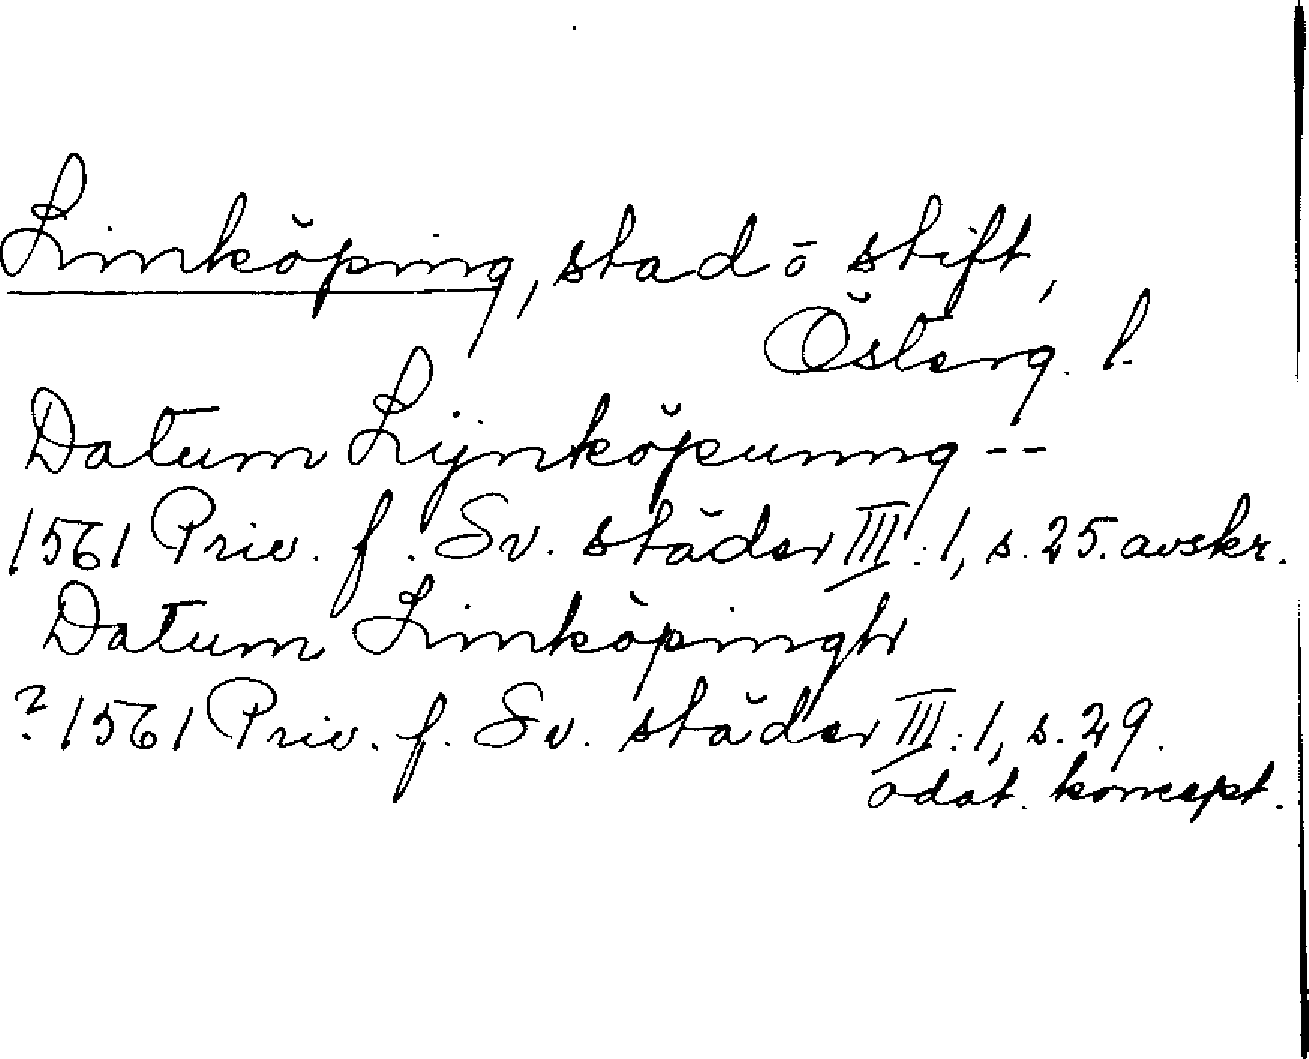 Linköping, stad ō stift,
Österg. l.
Datum Lijnköpunng --
1561 Priv. f. Sv. städer III:1, s. 25. avskr.
Datum Linköpingh
? 1561 Priv. f. Sv. städer III:1, s. 29.
odat. koncept.